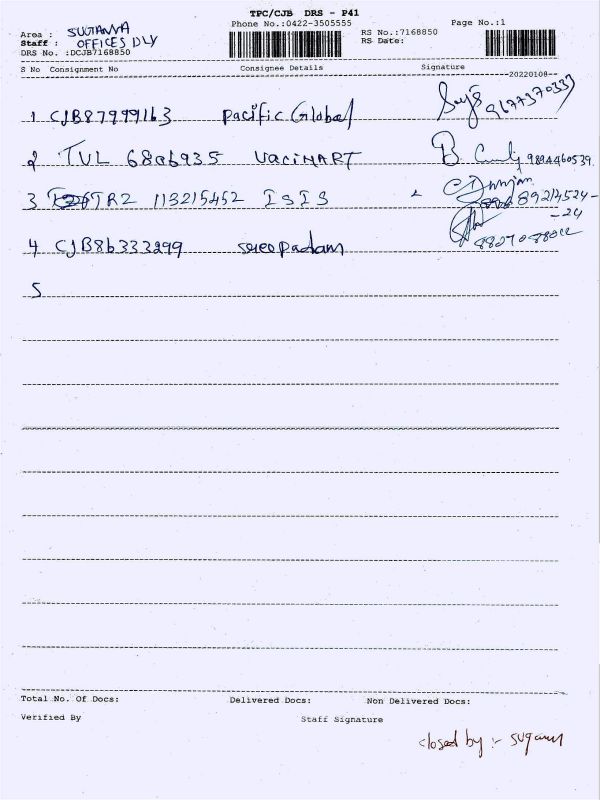 TPC/CJB DRS - P41
Phone No.:0422-3505555 Page No.:1
Area : RS No.:7168850
Staff : OFFICES DLY RS Date:
DRS No. :DCJB7168850
S No Consignment No Consignee Details Signature
--20220108--
1 CJB87999163 Pacific Global 9677370337
2 TVL 686b935 VaciMART 9894460539
3 TRZ 113215452 ISIS
4 CJB86333299 sreepadam
5
Total No. Of Docs: Delivered Docs: Non Delivered Docs:
Verified By Staff Signature
closed by :-